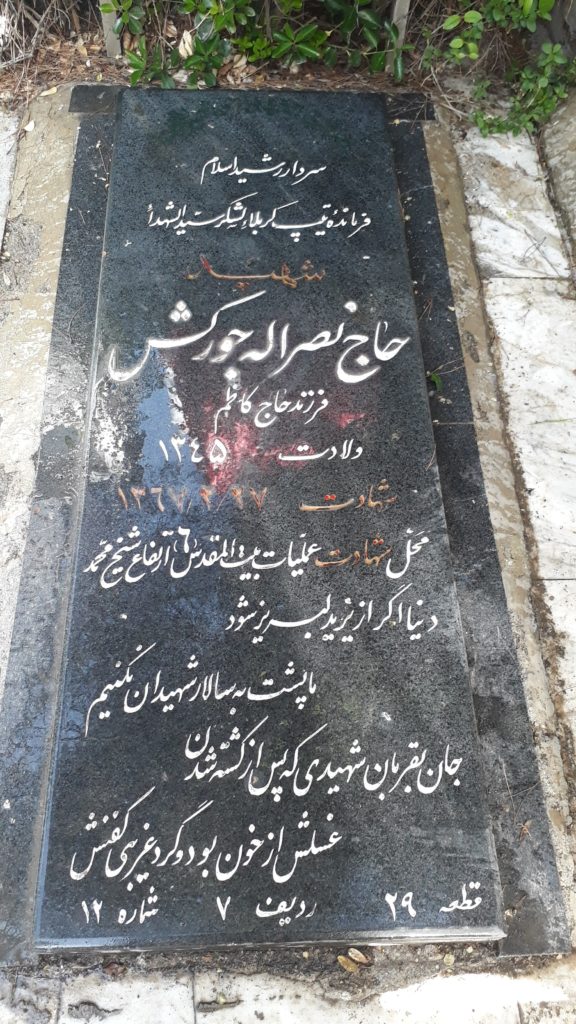 سردار رشید اسلام
فرماندهٔ تیپ کربلاء لشکر سیدالشهدأ
شهید
حاج نصراله جورکش
فرزند حاج کاظم
ولادت ۱۳۴۵
شهادت ۱۳۶۷/۲/۲۷
محل شهادت عملیات بیت المقدس ۶ ارتفاع شیخ محمد
دنیا اگر از یزید لبریز شود
ما پشت به سالار شهیدان نکنیم
جان بقربان شهیدی که پس از کشته شدن
غسلش از خون بود و گرد غریبی کفنش
قطعه ۲۹ ردیف ۷ شماره ۱۲